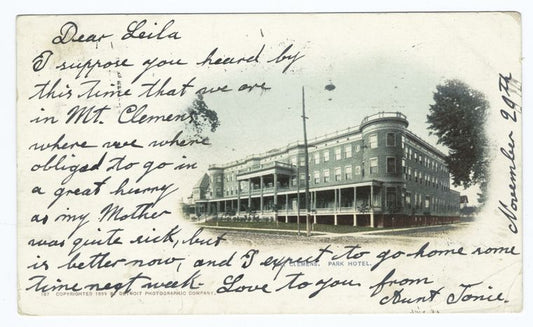 Dear Leila
I suppose you heard by
this time that we are
in Mt. Clemens
where we where
obliged to go in
a great hurry
as my Mother
was quite sick, but
is better now, and I expect to go home some
time next week. Love to you from
Aunt Tonie.
November 29th
CLEMENS. PARK HOTEL.
COPYRIGHTED 1899 BY DETROIT PHOTOGRAPHIC COMPANY.